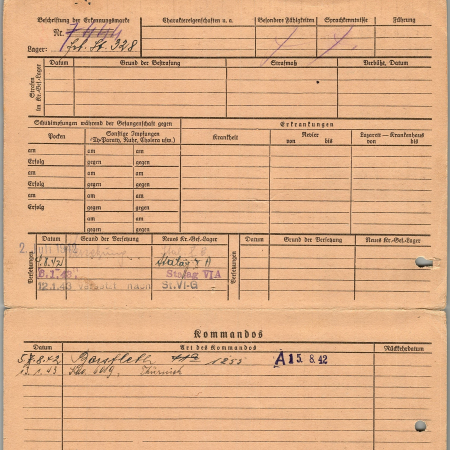 Beschriftung der Erkennungsmarke
Charaktereigenschaften u. a.
Besondere Fähigkeiten
Sprachkenntnisse
Führung
Nr. 7464
Lager: Frt. St. 328
Strafen im Kr.-Gef.-Lager
Datum
Grund der Bestrafung
Strafmaß
Verbüßt, Datum
Schutzimpfungen während der Gefangenschaft gegen
Erkrankungen
Pocken
Sonstige Impfungen
(Ty-Paraty, Ruhr, Cholera usw.)
Krankheit
Revier
von bis
Lazarett — Krankenhaus
von bis
am am am
Erfolg gegen gegen
am am am
Erfolg gegen gegen
am am am
Erfolg gegen gegen
am am
gegen gegen
2.
Versetzungen
Datum
Grund der Versetzung
Neues Kr.-Gef.-Lager
Versetzungen
Datum
Grund der Versetzung
Neues Kr.-Gef.-Lager
.8.42 Stalag X A
8.1.43. Stalag VI A
12.1.43 nach St.VI-G -
Kommandos
Datum
Art des Kommandos
Rückkehrdatum
5.8.42 1255 A 15. 8. 42
13.1.43